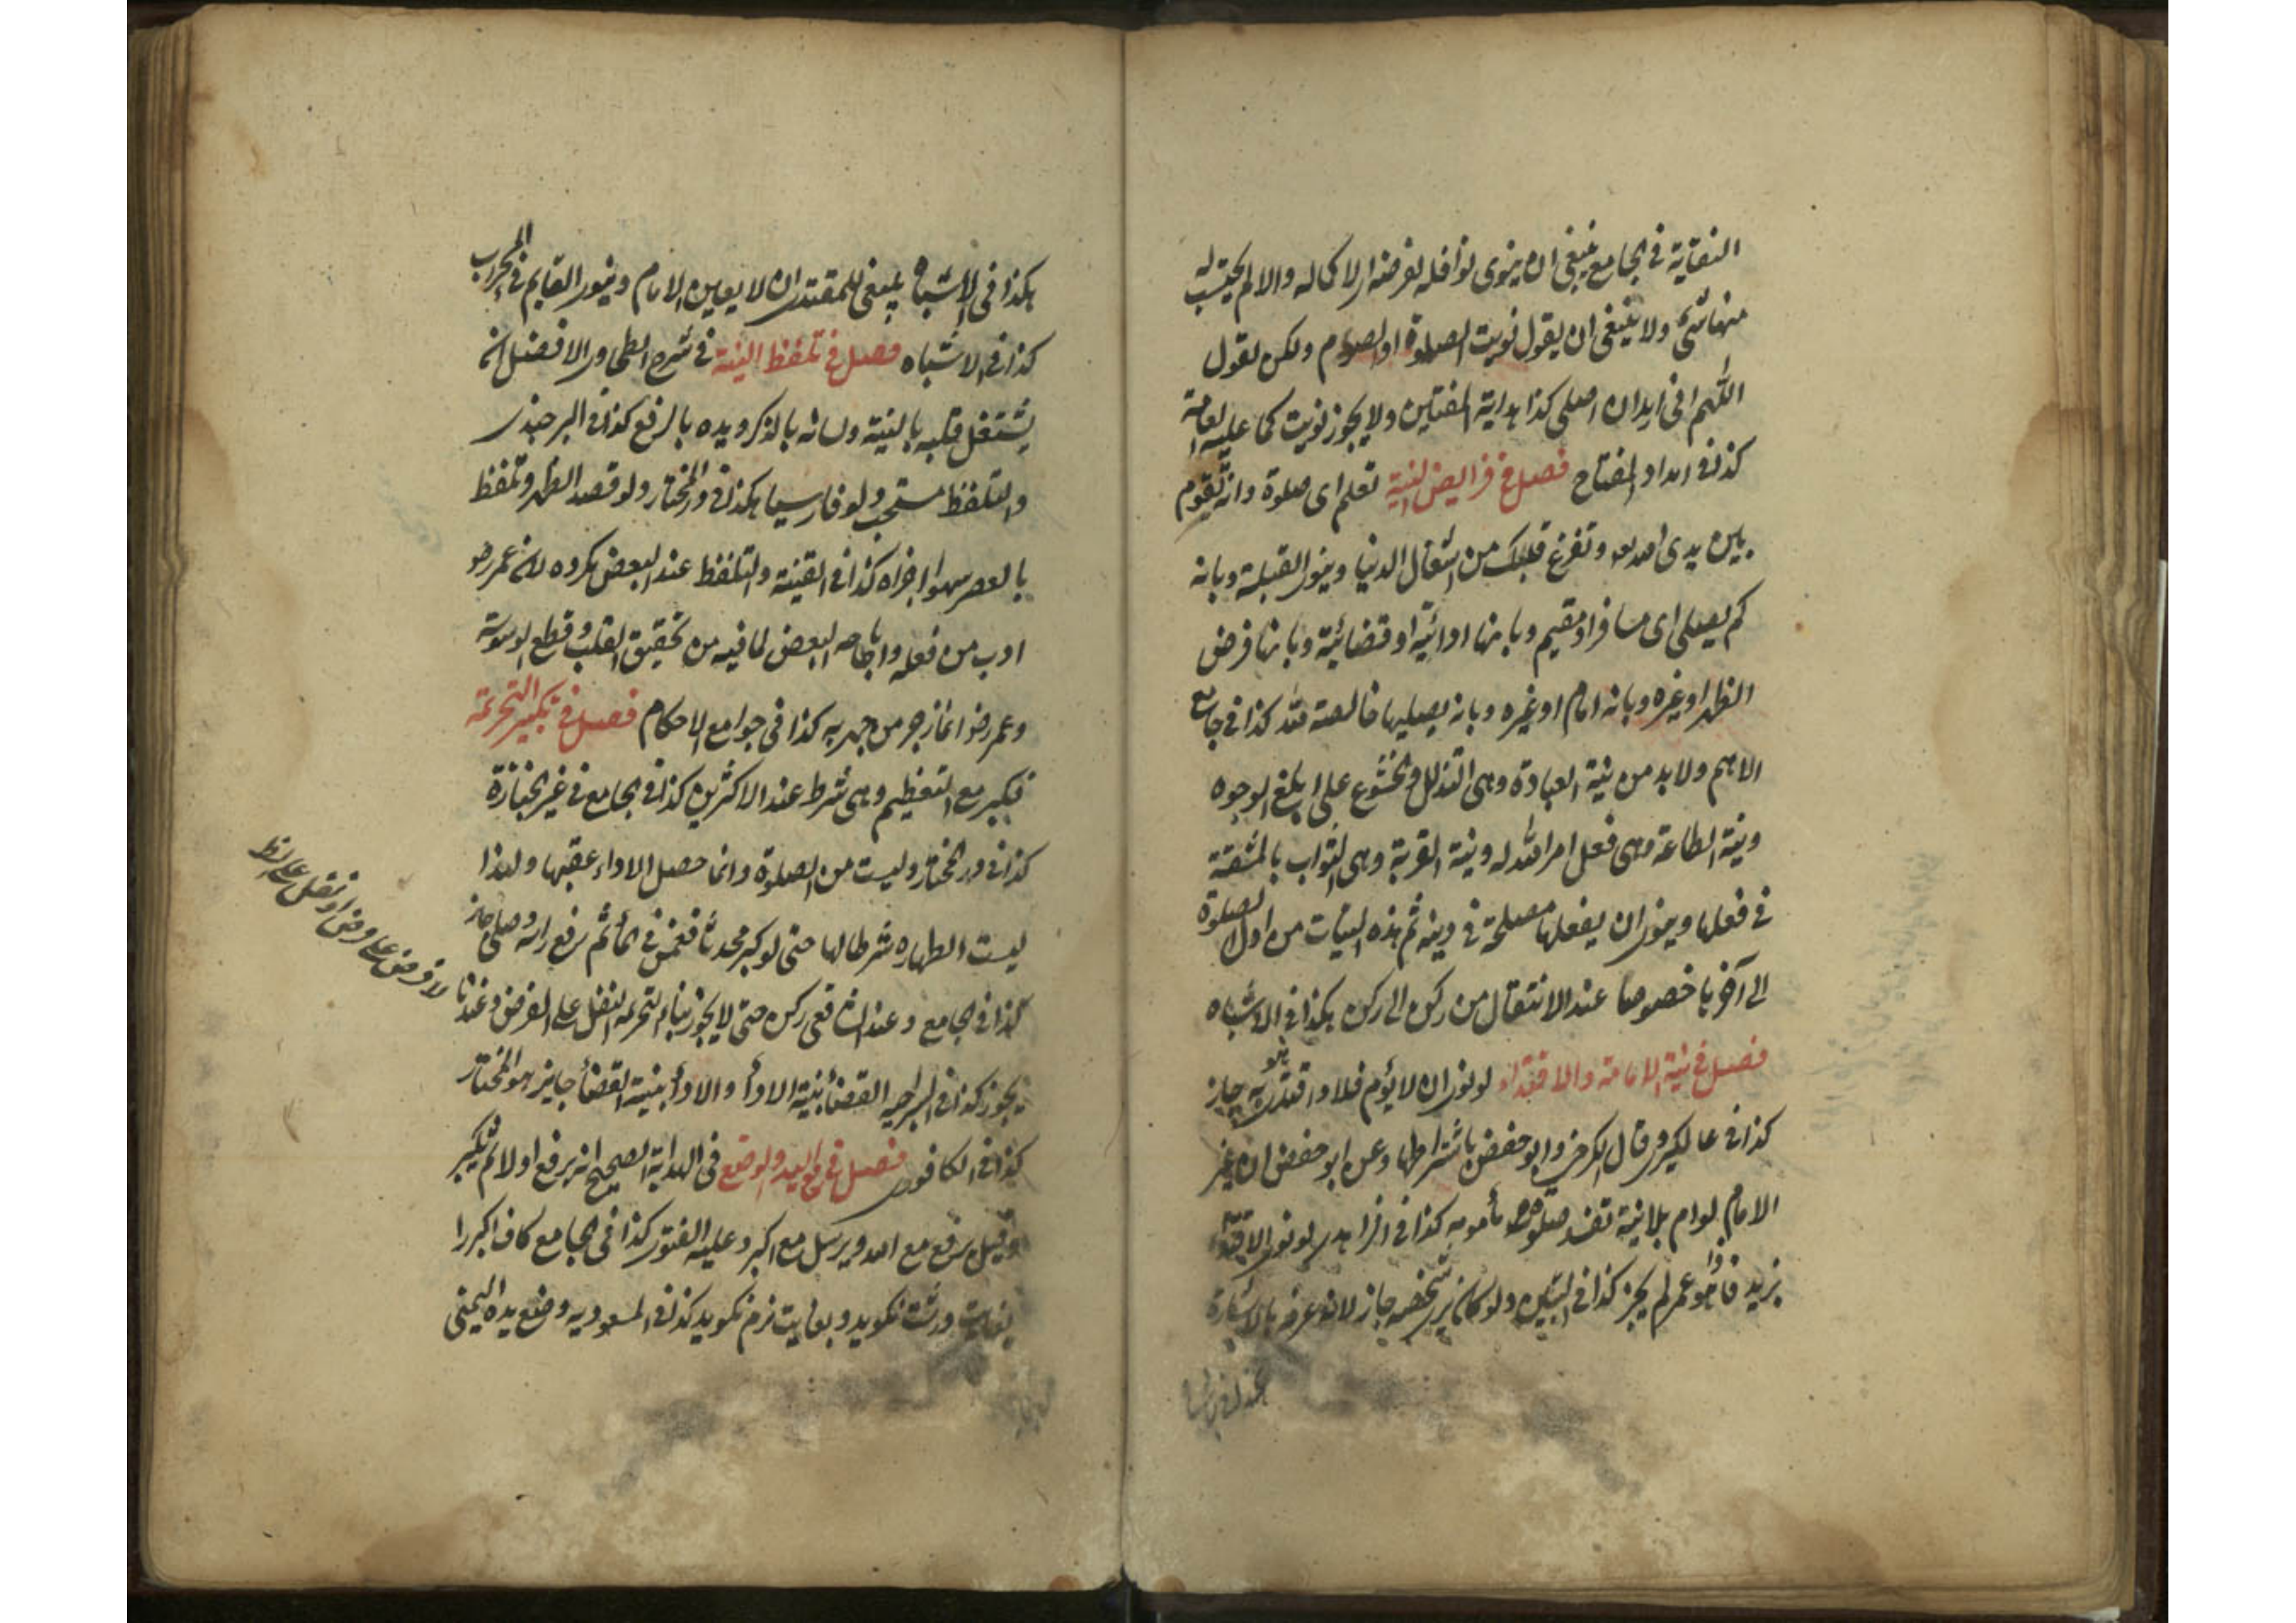 النقاية في الجامع ينبغي ان ينوي نوافله لفرضه او لاكماله والا لم يحتسب له
منها شئ ولا ينبغي ان يقول نويت الصلوة او الصوم ولكن يقول
اللهم اني اريد ان اصلي كذا هداية المفتين ولا يجوز نويت كما عليه العامة
كذا في امداد المفتاح فصل في فرايض النية تعلم اي صلوة وانه تقوم
بين يدي الله وتفرغ قلبك من اشغال الدنيا وينوي القبلة وبانه
كم يصلي اي مسافر او مقيم وبانها ادائية او قضائية وبانها فرض
الظهر او غيره وبانه امام او غيره وبانه يصليها خالصة لله كذا في جامع
الاهم ولا بد من نية العبادة وهي التذلل والخشوع على ابلغ الوجوه
ونية الطاعة وهي فعل امر الله له ونية القربة وهي الثواب بالمشقة
في فعلها وينوي ان يفعلها مصلحة في دينه ثم هذه النيات من اول الصلوة
الى آخرها خصوصا عند الانتقال من ركن الى ركن هكذا في الاشباه
فصل في نية الامامة والاقتداء لو نوى ان لا يؤم فلانا واقتدى به هو جاز
كذا في عالمكيري وقال الكرخي وابو حفص باشتراطها وعن ابو حفص ان غير
الامام لو ام بلا نية تفسد صلوة مأمومه كذا في الزاهدي لو نوى الاقتداء
بزيد فاذا هو عمر لم يجز كذا في التبيين ولو كان يرى شخصه جاز لانه عرفه بالاشارة
هكذا في الاشباه ينبغي للمقتدي ان لا يعين الامام وينوي القايم في المحراب
كذا في الاشباه فصل في تلفظ النية في شرح الطحاوي الافضل انه
يشتغل قلبه بالنية ولسانه بالذكر ويده بالرفع كذا في البرجندي
والتلفظ مستحب ولو فارسيا هكذا في در المختار ولو قصد الظهر وتلفظ
بالعصر سهوا اجزاه كذا في القنية والتلفظ عند البعض مكروه لان عمر رضو
ادب من فعله واباحه البعض لما فيه من تحقيق القلب وقطع الوسوسة
وعمر رضو انما زجر من جهر به كذا في جوامع الاحكام فصل في تكبير التحريمة
فيكبر مع التعظيم وهي شرط عند الاكثرين كذا في الجامع في غير الجنازة
كذا في در المختار وليست من الصلوة وانما حصل الاداء عقبها ولهذا
ليست الطهاره شرطا لها حتى لو كبر محدثا فغمس في الماء ثم رفع راسه وصلى جاز
كذا في الجامع وعند الشافعي ركن حتى لا يجوز بناء التحريمه النفل على الفرض وعندنا
يجوز كذا في السراجيه القضاء بنية الاداء والاداء بنية القضاء جايز هو المختار
كذا في الكافوري فصل في رفع اليد والوضع في الهداية الصحيح انه يرفع اولا ثم يكبر
وقيل يرفع مع الله ويرسل مع اكبر وعليه الفتوى كذا في الجامع كاف اكبر را
بغايت درشت نكويد وبغايت نرم نكويد كذا في المسعوديه وضع يده اليمنى
لا فرض على فرض او نفل على